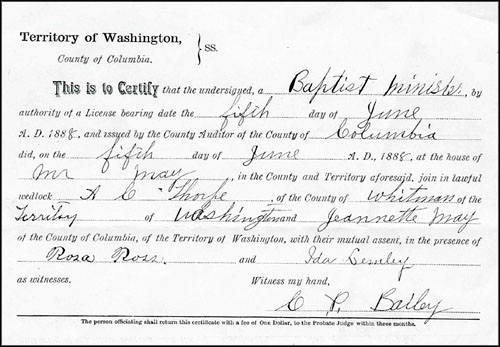 Territory of Washington,
County of Columbia. } SS.
This is to Certify that the undersigned, a Baptist Minister, by
authority of a License bearing date the fifth day of June
A. D. 1888, and issued by the County Auditor of the County of Columbia
did, on the fifth day of June A. D., 1888, at the house of
Mr May, in the County and Territory aforesaid, join in lawful
wedlock A C Thorpe, of the County of Whitman of the
Territory of Washington and Jeannette May
of the County of Columbia, of the Territory of Washington, with their mutual assent, in the presence of
Rosa Ross and Ida
as witnesses. Witness my hand,
C P. Bailey
The person officiating shall return this certificate with a fee of One Dollar, to the Probate Judge within three months.